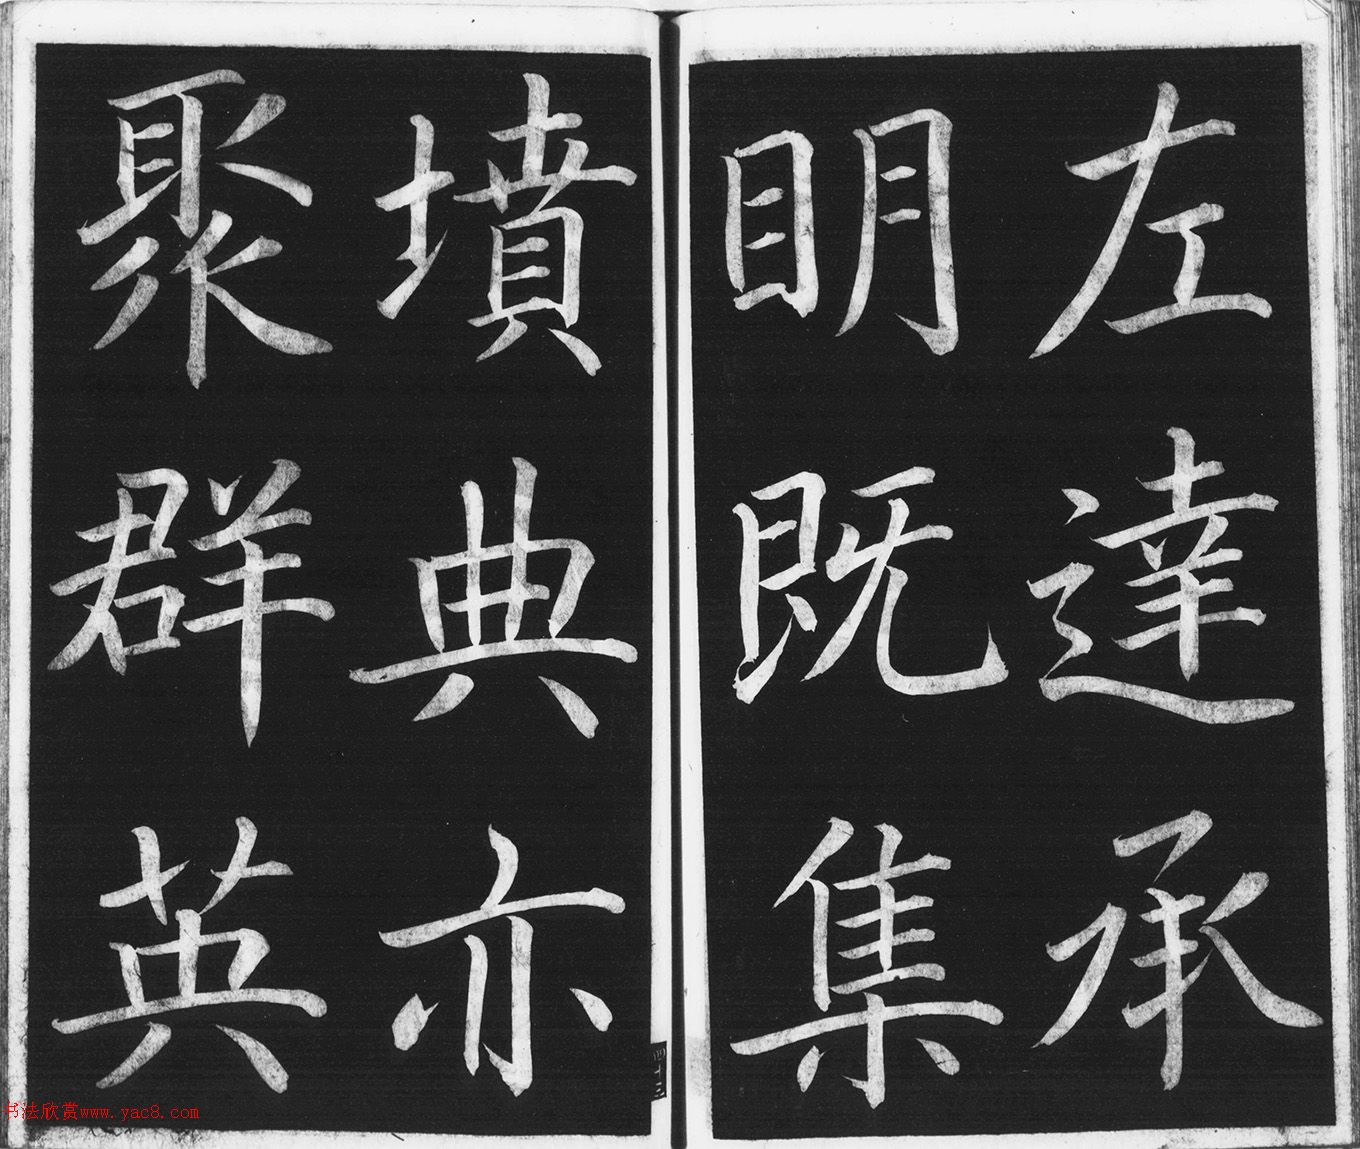 左達承
明既集
墳典亦
聚群英
四十三
书法欣赏www.yac8.com